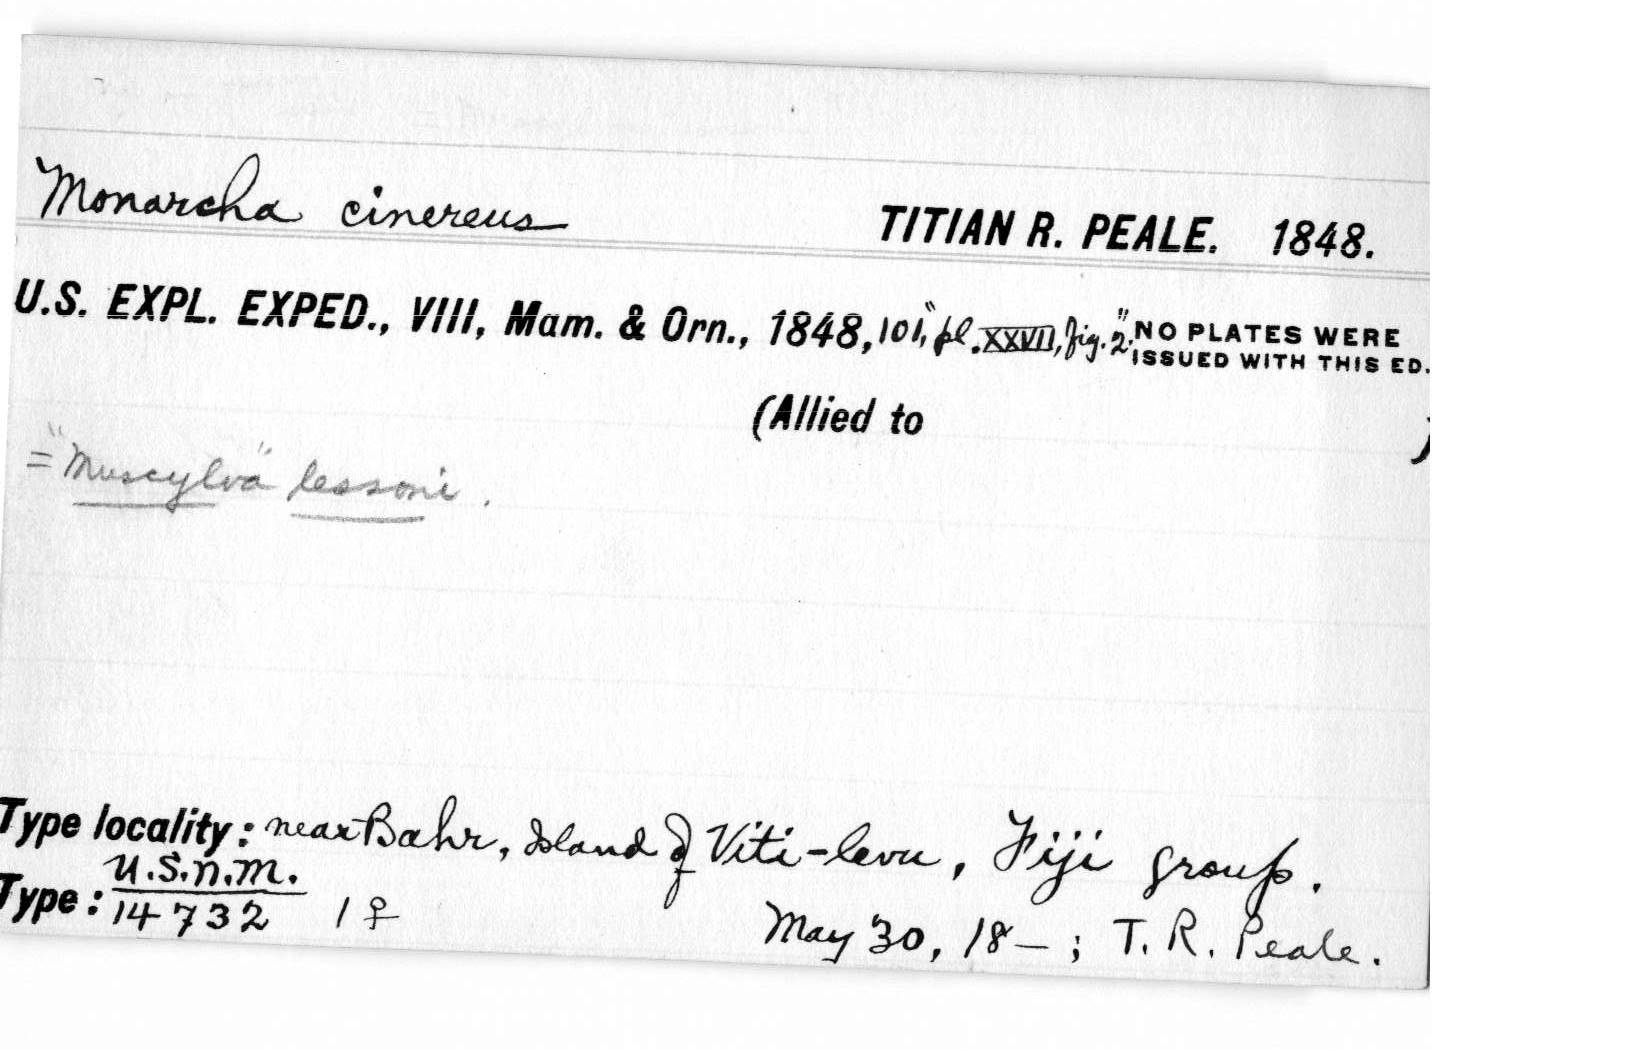 Monarcha cinereus TITIAN R. PEALE. 1848.
U.S. EXPL. EXPED., VIII, Mam. & Orn., 1848, 101, "pl. XXVII, fig. 2." NO PLATES WERE
ISSUED WITH THIS ED.
(Allied to )
= "Muscylva" lessoni.
Type locality: near Bahr, Island of Viti-levu, Fiji group.
Type: U.S.N.M.
14732 1♀ May 30, 18—; T. R. Peale.